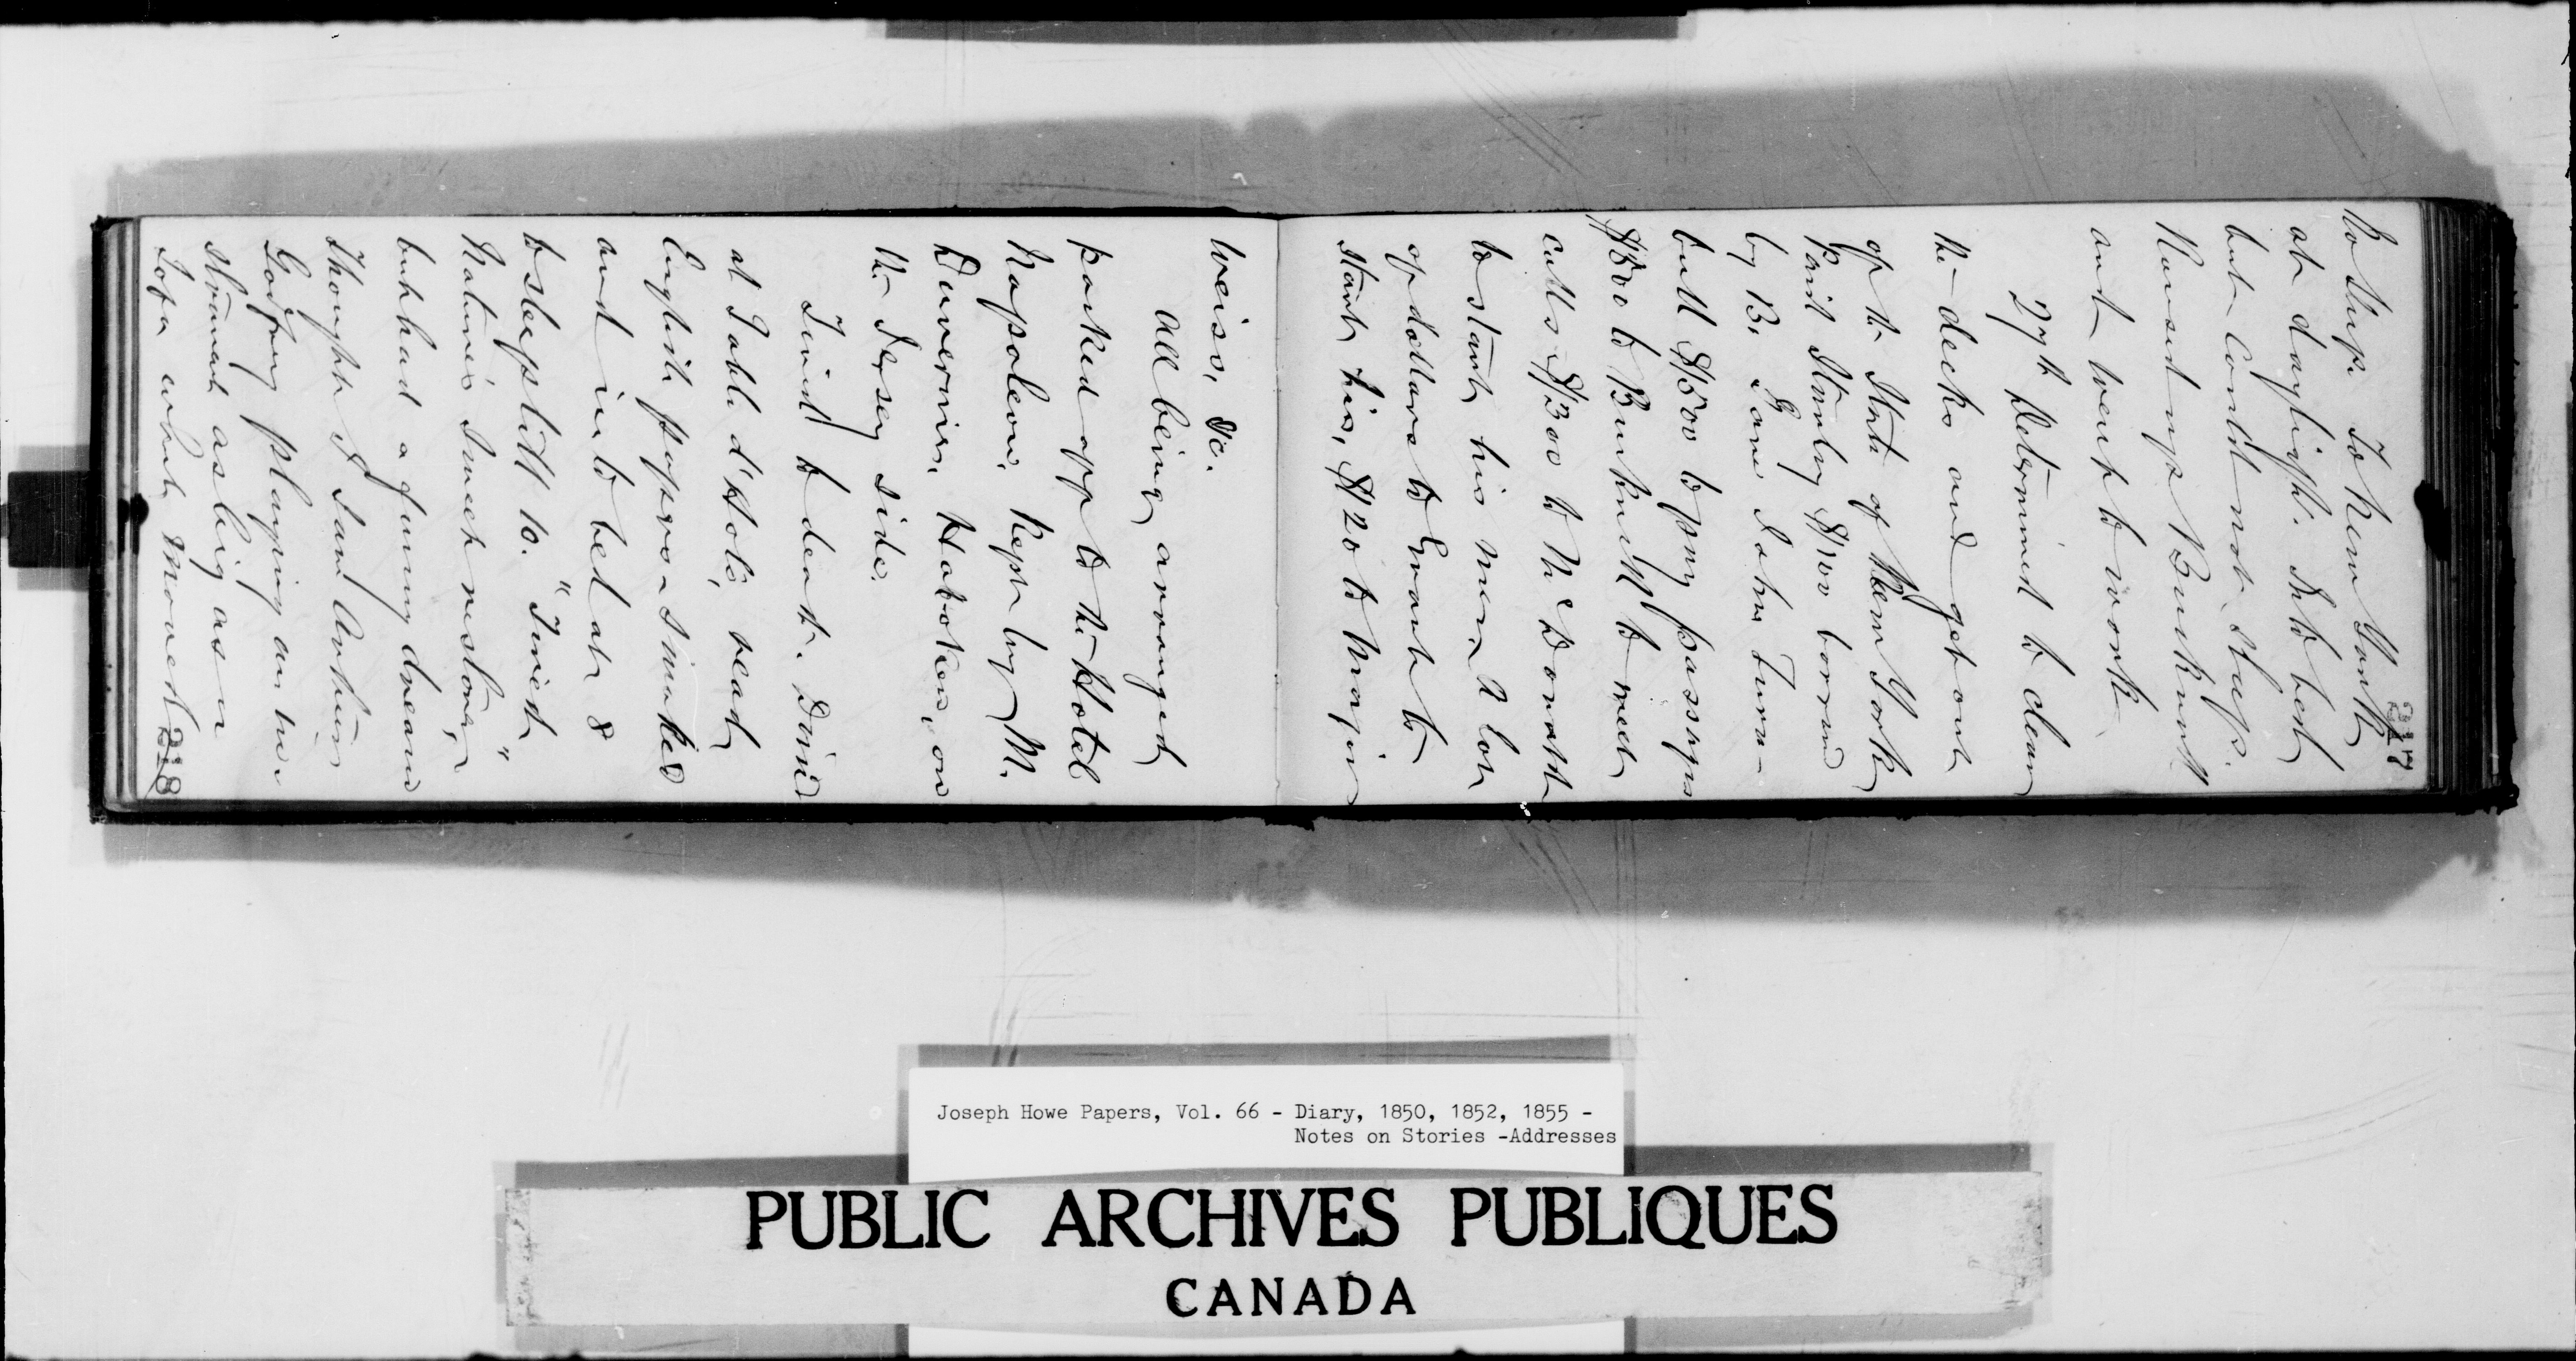 217
to sleep. To New York
at daylight. Into bed
but could not sleep.
Roused up Bucknall
and went to work.
27th Determined to clean
the decks and get out
of the State of New York
Paid Stanley $100 borrowed
by B. Gave John Turn-
bull $500 to pay passages
$800 to Bucknall to meet
calls $300 to McDonald
to start his men A lot
of dollars to Grant to
start his, $20 to
weiss, &c.
All being arranged
packed off to the Hotel
Napoleon, kept by M.
Duvernier, Hoboken, on
the Jersey side.
Tired to death. Dined
at Table d'Hote, read
English papers smoked
and into bed at 8
to sleep till 10. "Tired
Nature's sweet restorer,"
but had a funny dream
Thought I saw Arthur
Godfrey playing on an in-
strument as big as a
Sofa which moved
218
Joseph Howe Papers, Vol. 66 - Diary, 1850, 1852, 1855 -
Notes on Stories -Addresses
PUBLIC ARCHIVES PUBLIQUES
CANADA